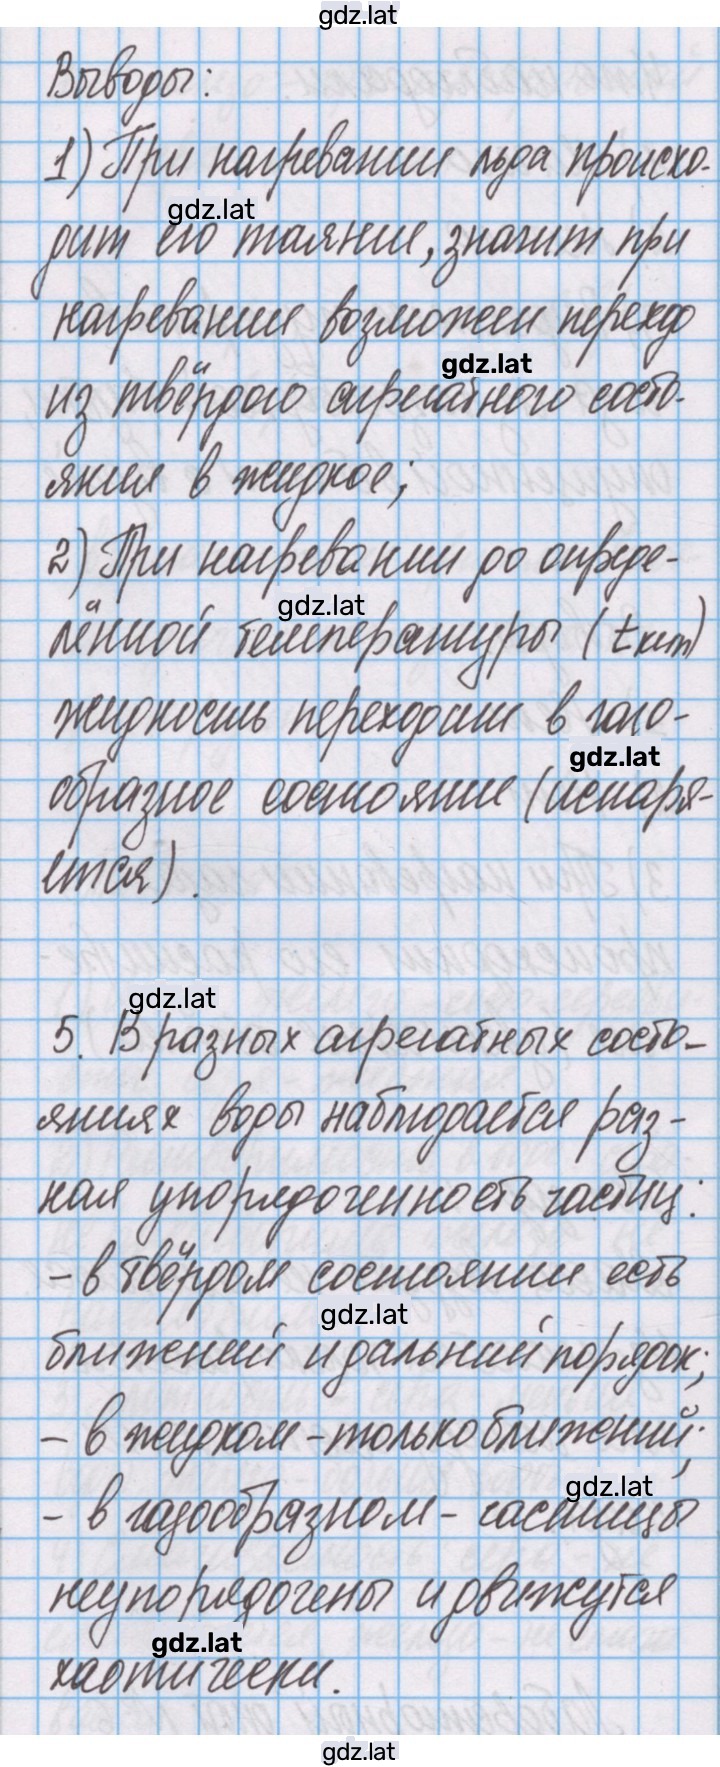 gdz.lat
Выводы:
1) При нагревании льда происхо-
gdz.lat
дит его таяние, значит при
нагревании возможен переход
gdz.lat
из твёрдого агрегатного состо-
яния в жидкое;
2) При нагревании до опреде-
gdz.lat
лённой температуры (tкип)
жидкость переходит в газо-
gdz.lat
образное состояние (испаря-
ется).
gdz.lat
5. В разных агрегатных состо-
яниях воды наблюдается раз-
ная упорядоченность частиц:
- в твёрдом состоянии есть
gdz.lat
ближний и дальний порядок;
- в жидком - только ближний;
gdz.lat
- в газообразном - частицы
неупорядочены и движутся
gdz.lat
хаотически.
gdz.lat